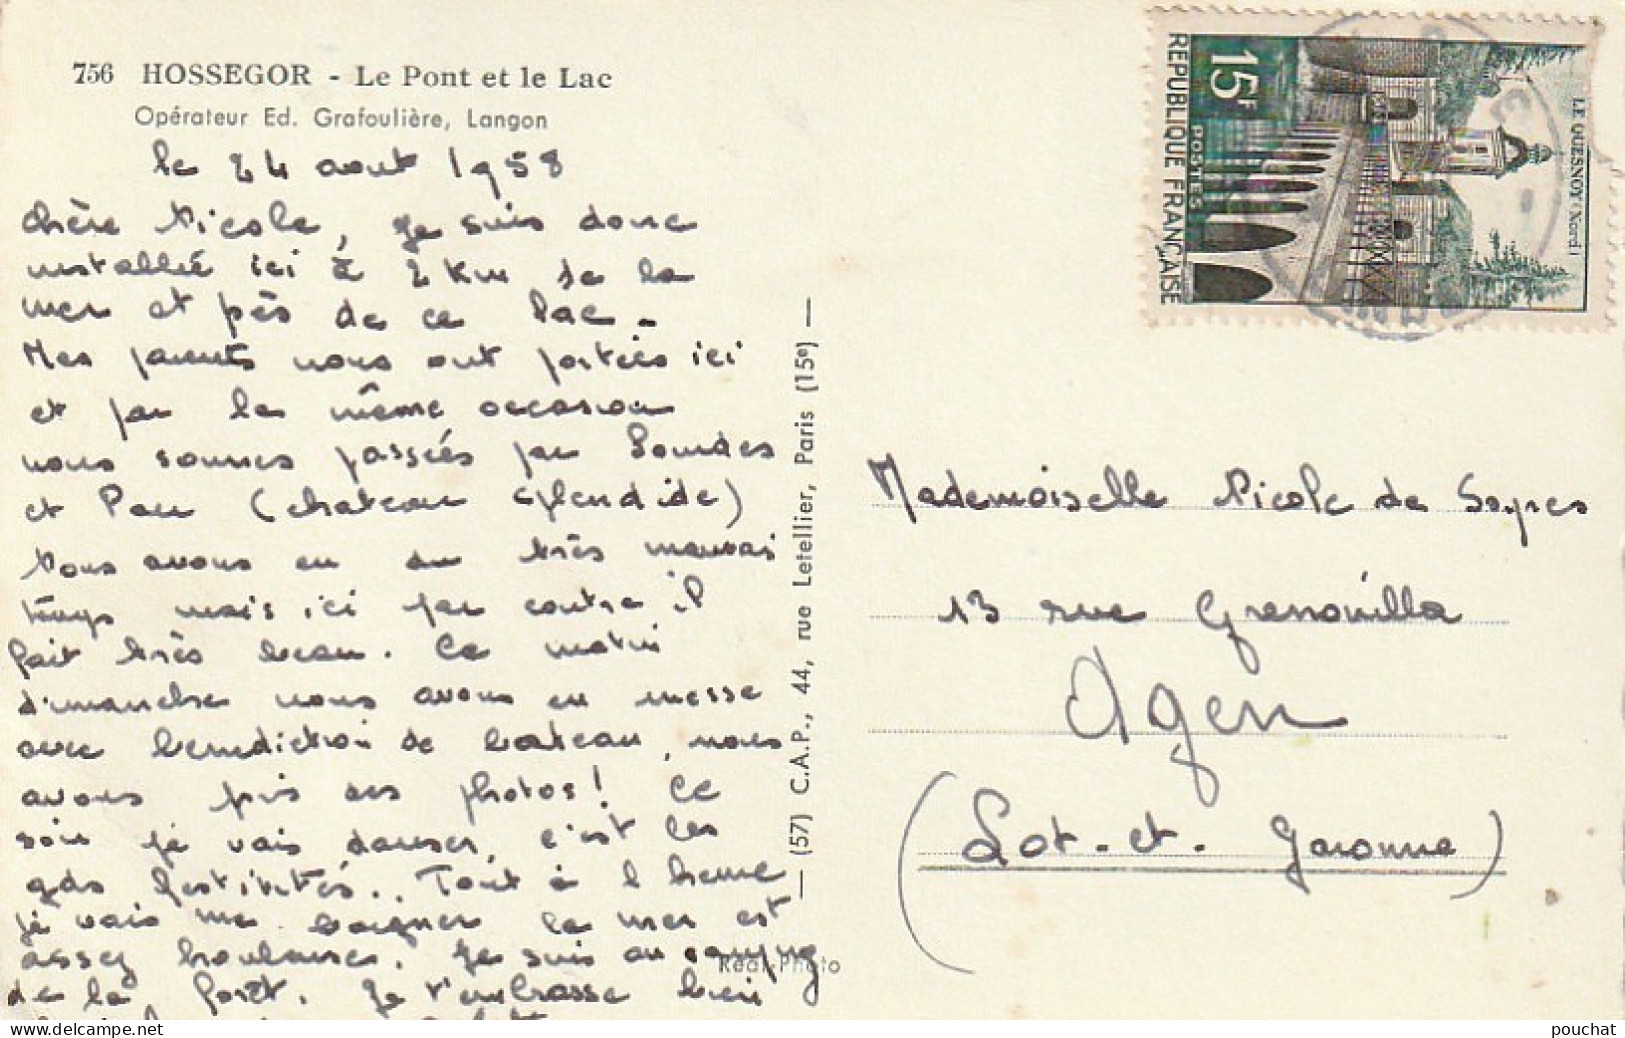 756 HOSSEGOR - Le Pont et le Lac
Opérateur Ed. Grafoulière, Langon
le 24 aout 1958
Chère Nicole, je suis donc
installée ici à 2 km de la
mer et près de ce lac -
Mes parents nous ont portées ici
et par la même occasion
nous sommes passées par Lourdes
et Pau (chateau splendide)
Nous avons eu du très mauvais
temps mais ici par contre il
fait très beau. Ce matin
dimanche nous avons eu messe
avec benediction de bateau, nous
avons pris des photos! Ce
soir je vais danser, c'est les
gdes festivités.. Tout à l heure
je vais me baigner la mer est
assez houleuse. Je suis au camping
de la forêt. Je t'embrasse bien
(57) C.A.P., 44, rue Letellier, Paris (15e)
Réal-Photo
RÉPUBLIQUE FRANÇAISE
15F
POSTES
LE QUESNOY (Nord)
Mademoiselle Nicole de Soyres
13 rue Grenouilla
Agen
(Lot-et-Garonne)
pouchat